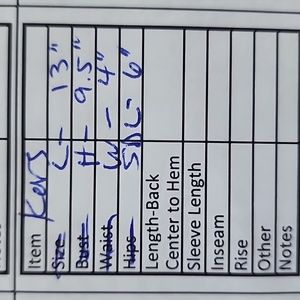 Item Kors
Size L- 13"
Bust H- 9.5"
Waist W- 4"
Hips SDL- 6"
Length-Back
Center to Hem
Sleeve Length
Inseam
Rise
Other
Notes